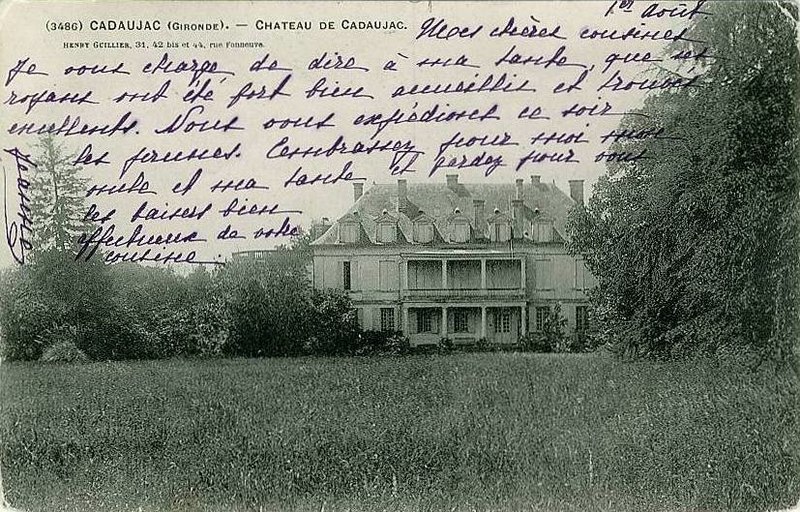 (3486) CADAUJAC (GIRONDE). — CHATEAU DE CADAUJAC.
HENRY GUILLIER, 31, 42 bis et 44, rue Fonneuve.
1er Août
Mes chères cousines
Je vous charge de dire à ma tante que ses
royans ont été fort bien accueillis et trouvés
excellents. Nous vous expédions ce soir
les prunes. Embrassez pour moi mon
oncle et ma tante et gardez pour vous
les baisers bien
affectueux de votre
cousine.